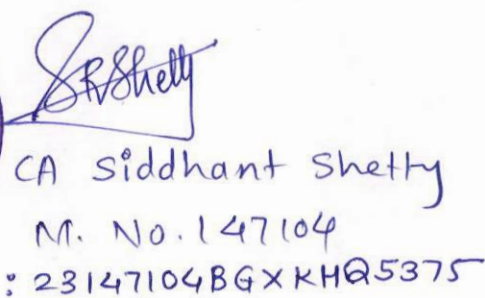 SRShetty
CA Siddhant Shetty
M. No. 147104
: 23147104BGXKHQ5375